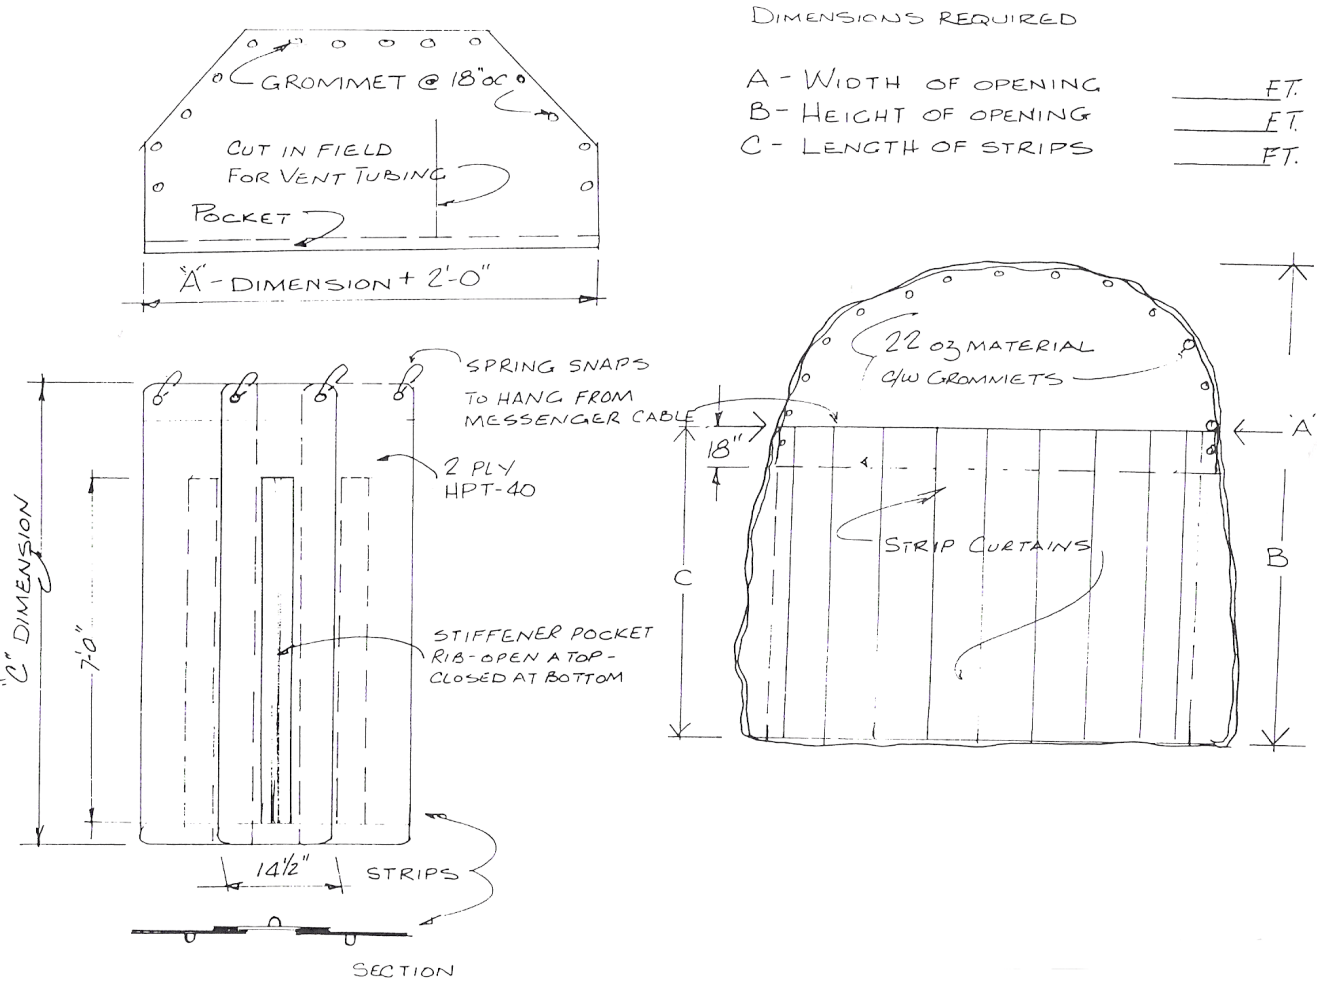 DIMENSIONS REQUIRED
A - WIDTH OF OPENING FT.
B - HEIGHT OF OPENING FT.
C - LENGTH OF STRIPS FT.
GROMMET @ 18" OC
CUT IN FIELD
FOR VENT TUBING
POCKET
"A" - DIMENSION + 2'-0"
SPRING SNAPS
TO HANG FROM
MESSENGER CABLE
2 PLY
HPT-40
"C" DIMENSION
7'-0"
STIFFENER POCKET
RIB-OPEN A TOP -
CLOSED AT BOTTOM
14 1/2"
STRIPS
SECTION
22 oz MATERIAL
C/W GROMMETS
18"
'A'
STRIP CURTAINS
C
B